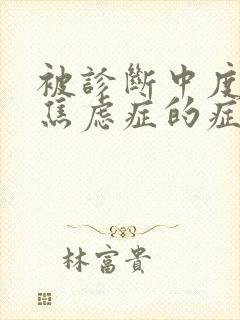 被診斷中度
焦虑症的症
林富貴